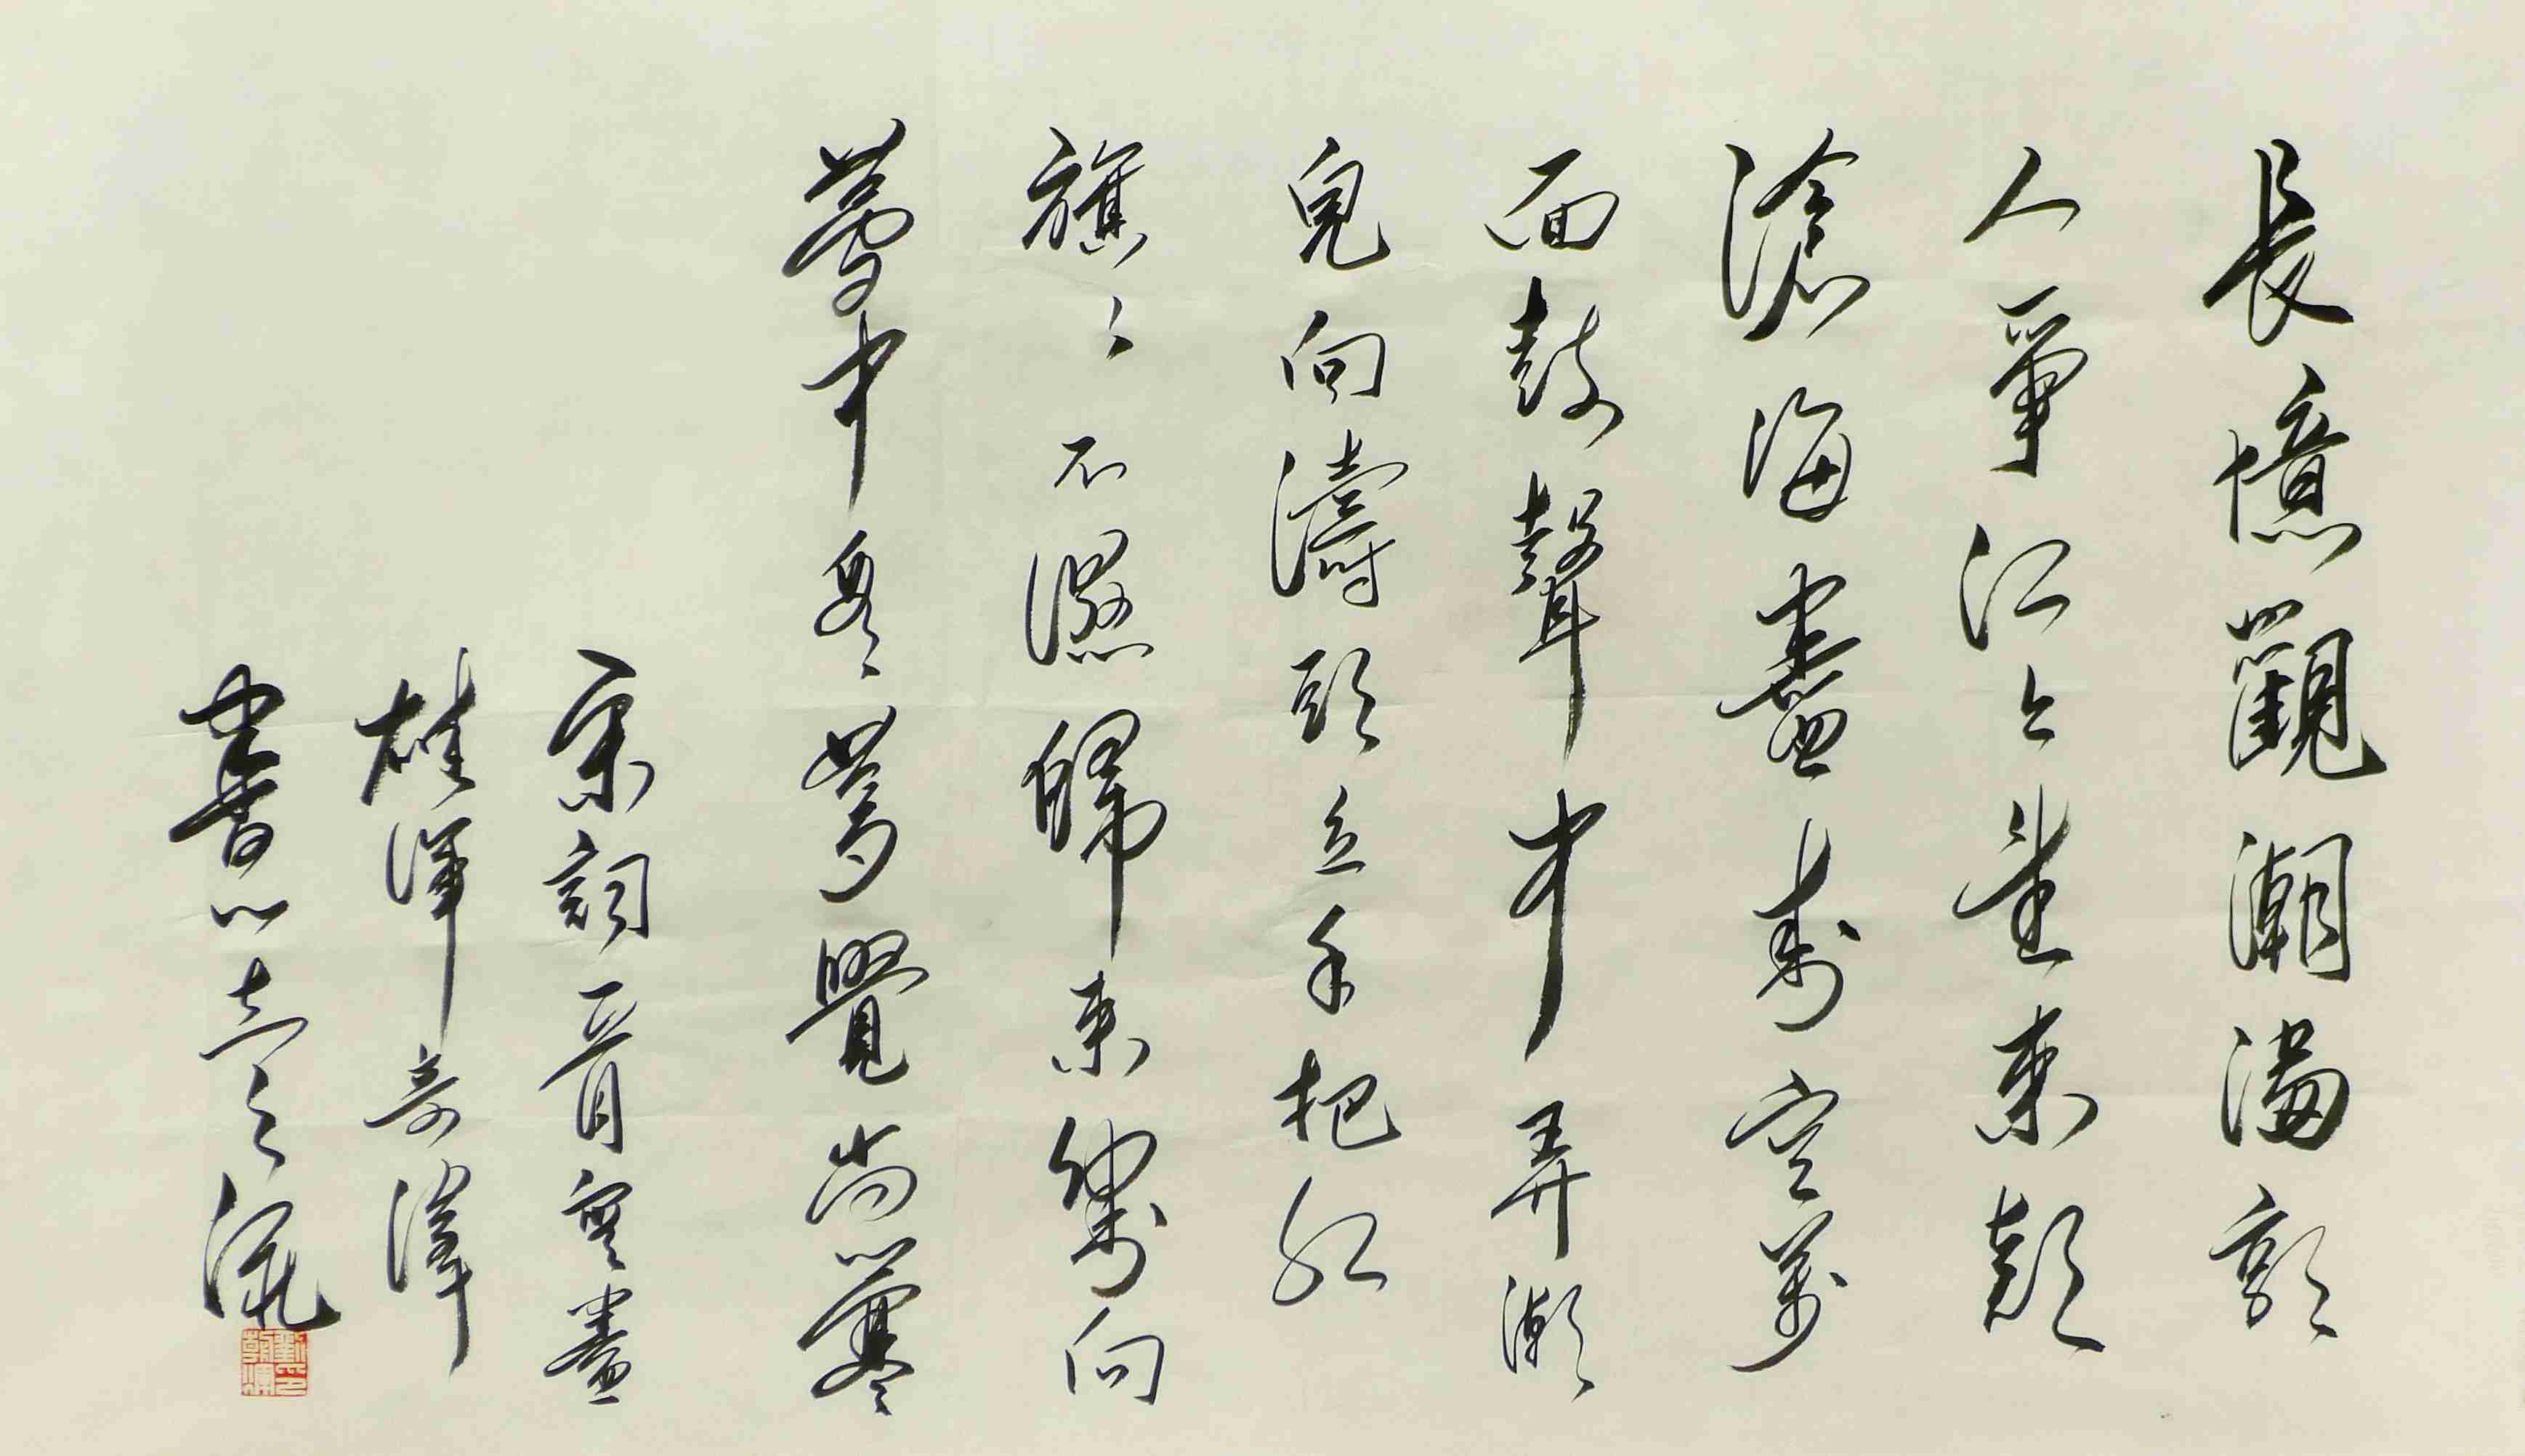 長憶觀潮滿郭
人爭江上望來疑
滄海盡成空萬
面鼓聲中弄潮
兒向濤頭立手把紅
旗々不濕歸來幾向
夢中看夢覺尚心寒
宋詞一首寫盡
雄渾奇
書以志之